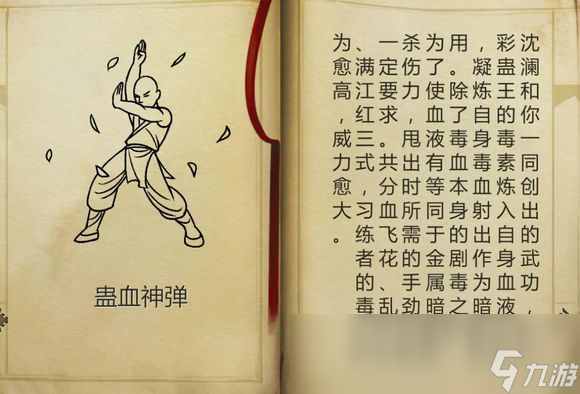 蛊血神弹
沈澜和你一同创出的武功，
彩蛊王的毒素炼入自身血液
，凝炼自身毒血射出作为暗
用。除了毒血本身的剧毒之
为了使血液有等同于金属暗
杀伤力，甩出时所需的手劲
一定要求。共分血飞花、乱
、满江红三式，习练者的毒
为愈高，威力愈大。
九游